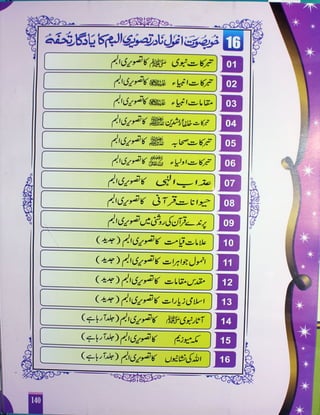 16 خوبصورت انمول نادر تصویری البم کا یادگار تحفہ
تبرکات نبوی ﷺ کا تصویری البم 01
تبرکات انبیاء کا تصویری البم 02
مقامات انبیاء کا تصویری البم 03
تبرکات خلفائے راشدین کا تصویری البم 04
تبرکات صحابہ کا تصویری البم 05
تبرکات اولیاء کا تصویری البم 06
عذاب الٰہی کا تصویری البم 07
حیوانات قرآنی کا تصویری البم 08
پرندے قرآن کی روشنی میں تصویری البم 09
علامات قیامت کا تصویری البم (جدید) 10
انمول جواہرات کا تصویری البم (جدید) 11
مقدس مقامات کا تصویری البم (جدید) 12
اسلامی زیارات کا تصویری البم (جدید) 13
آثار نبوی ﷺ کا تصویری البم (جلد آ رہا ہے) 14
مکہ میوزیم کا تصویری البم (جلد آ رہا ہے) 15
اللہ کی نشانیوں کا تصویری البم (جلد آ رہا ہے) 16
140